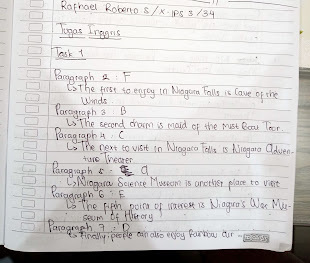 Raphael Roberto S / X IPS 3 / 34
Tugas Inggris
Task 1
Paragraph 2 : F
↳ The first to enjoy in Niagara Falls is Cave of the
Winds.
Paragraph 3 : B
↳ The second charm is maid of the mist Boat Tour
Paragraph 4 : C
↳ The next to visit in Niagara Falls is Niagara Adven-
ture Theater
Paragraph 5 : a
↳ Niagara Science Museum is another place to visit
Paragraph 6 : E
↳ The fifth point of interest is Niagara's Wax Mu-
seum of History
Paragraph 7 : D
↳ Finally, people can also enjoy Rainbow Air